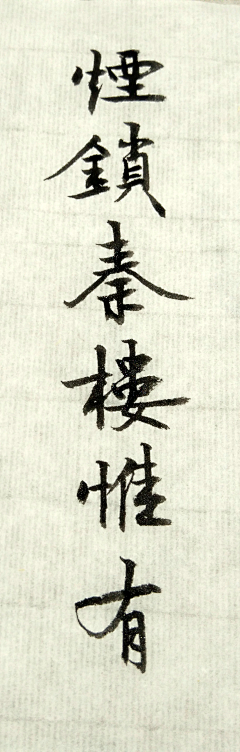 煙鎖秦樓惟有